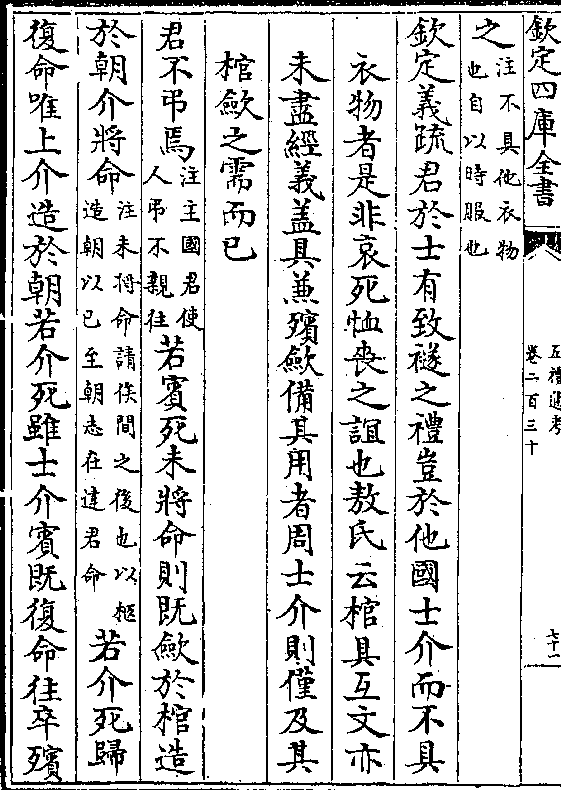 欽定四庫全書
五禮通考
卷二百三十
七十一
之注不具他衣物
也自以時服也
欽定義疏君於士有致襚之禮豈於他國士介而不具
衣物者是非哀死恤喪之誼也敖氏云棺具互文亦
未盡經義盖具兼殯斂備其用者周士介則僅及其
棺斂之需而已
君不弔焉注主國君使
人弔不親往若賓死未將命則既斂於棺造
於朝介將命注未將命請俟間之後也以柩
造朝以已至朝志在達君命若介死歸
復命唯上介造於朝若介死雖士介賓既復命往卒殯